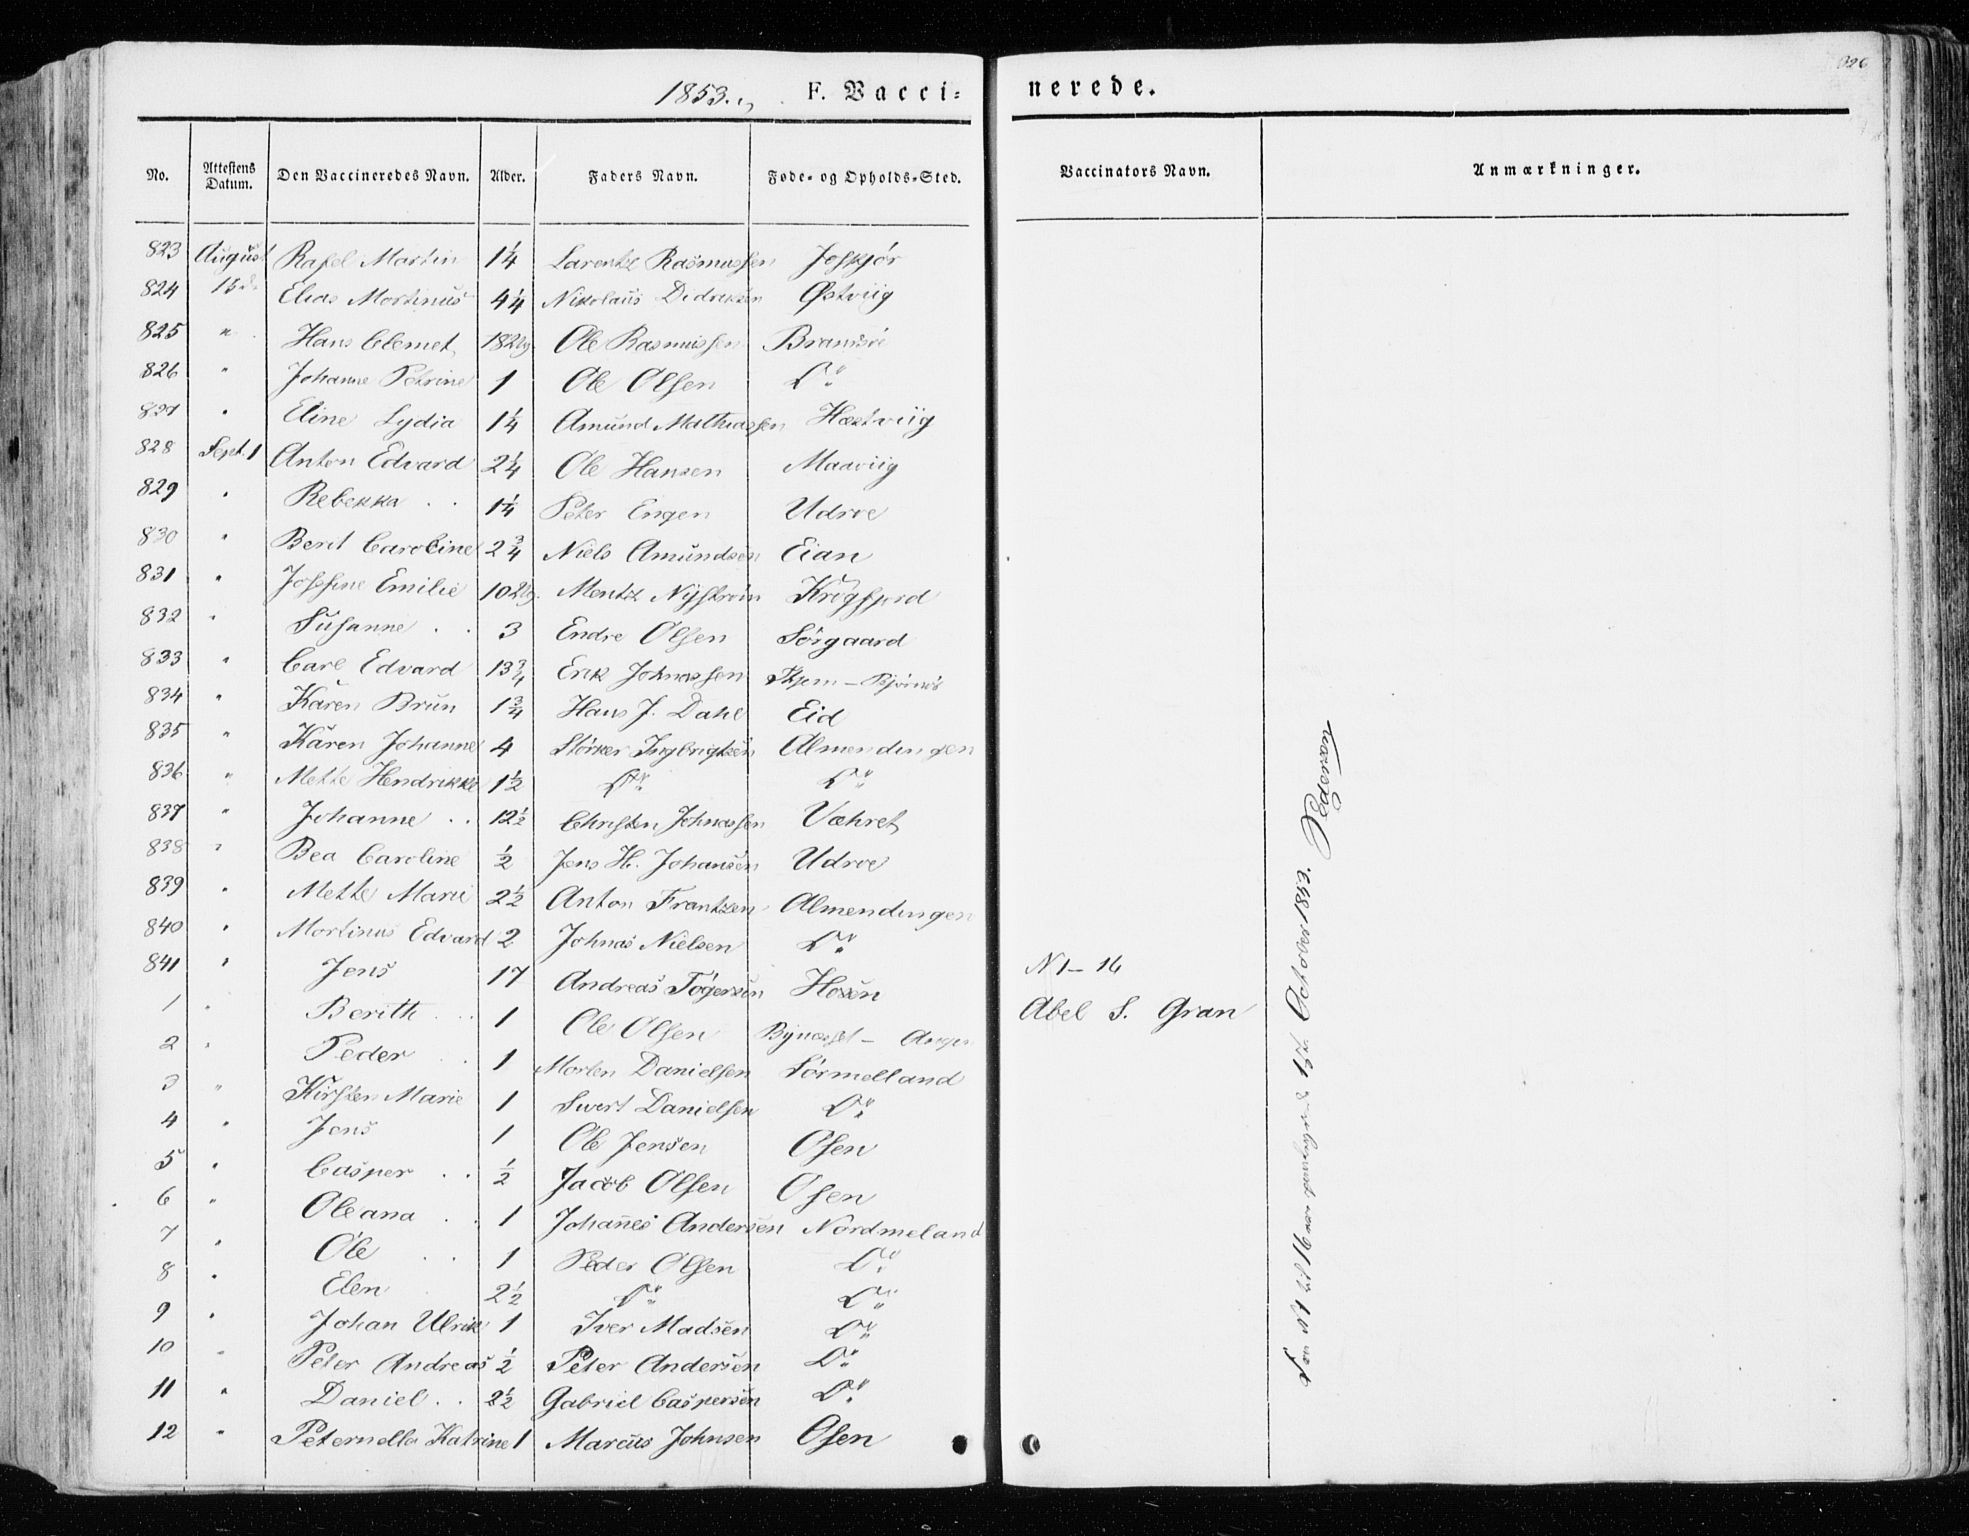 1853. F. Vacci= nerede.
No. Attestens Datum. Den Vaccineredes Navn. Alder. Faders Navn. Føde- og Opholds-Sted. Vaccinators Navn. Anmærkninger.
823 August Rafel Martin 1¼ Larentz Rasmussen
824 15 Elias Martinus 4¼ Nikolaus Didriksen Østviig
825 " Hans Clemet Ole Rasmussen
826 " Johanne Petrine 1 Ole Olsen D"
827 " Eline Lydia 1¼ Amund Mathiassen Hæstviig
828 Sept. 1 Anton Edvard 2¼ Ole Hansen Maaviig
829 " Rebekka . . 1¼ Peter Engen Udroe
830 " Berit Caroline 2¾ Niels Amundsen Eian
831 " Josefine Emilie Mentz Nystrøm Krogfjord
832 " Susanne . . 3 Endre Olsen Sørgaard
833 " Carl Edvard 13¾ Erik Johnassen
834 " Karen Brun 1¾ Hans J. Dahl Eid
835 " Karen Johanne 4 Størker Ingbrigtsen Almendingen
836 " Mette Hendrikke 1½ D" D"
837 " Johanne . . 12½ Christen Johnassen Væhret
838 " Bea Caroline ½ Jens H. Johansen Udroe
839 " Mette Marie 2½ Anton Frantzen Almendingen
840 " Martinus Edvard 2 Johnas Nielsen D"
841 " Jens 17 Andreas Tøgersen Hosen N 1-16
1 " Berith . . 1 Ole Olsen Bynæsset - Abel S. Gran
2 " Peder . . 1 Morten Danielsen Sørmelland
3 " Kirsten Marie 1 Sivert Danielsen D"
4 " Jens 1 Ole Jensen Osen
5 " Casper . . ½ Jacob Olsen Osen
6 " Oleana . . 1 Johanes Andersen Nordmeland
7 " Ole . . 1 Peder Olsen D"
8 " Elen 2½ D" D"
9 " Johan Ulrik 1 Iver Madsen D"
10 " Peter Andreas ½ Peter Andersen D"
11 " Daniel . . 2½ Gabriel Caspersen D"
12 " Peternella Katrine 1 Marcus Johnsen Osen
N 1 til 16 October 1853. Pedersen